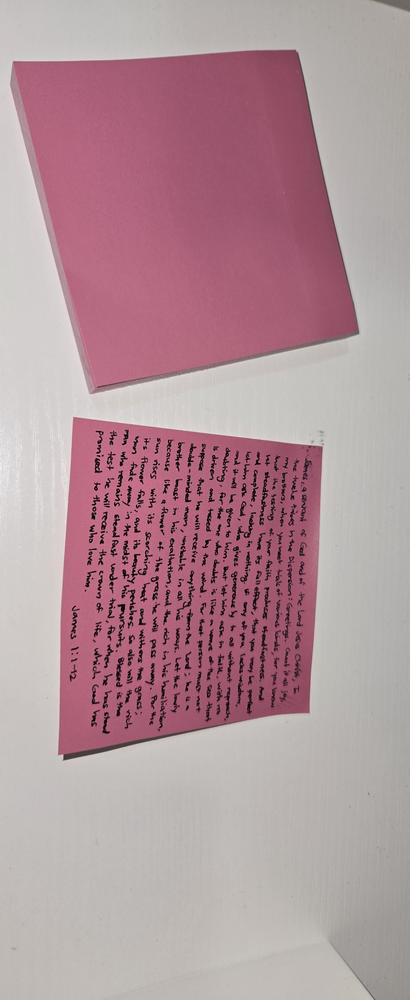 James, a servant of God and of the Lord Jesus Christ, To
the twelve tribes in the Dispersion: Greetings. Count it all joy,
my brothers, when you meet trials of various kinds, for you know
that the testing of your faith produces steadfastness. And
let steadfastness have its full effect, that you may be perfect
and complete, lacking in nothing. If any of you lacks wisdom,
let him ask God, who gives generously to all without reproach,
and it will be given to him. But let him ask in faith, with no
doubting, for the one who doubts is like a wave of the sea that
is driven and tossed by the wind. For that person must not
suppose that he will receive anything from the Lord; he is a
double-minded man, unstable in all his ways. Let the lowly
brother boast in his exaltation, and the rich in his humiliation,
because like a flower of the grass he will pass away. For the
sun rises with its scorching heat and withers the grass;
it's flower falls, and its beauty perishes. So also will the rich
man fade away in the midst of his pursuits. Blessed is the
man who remains steadfast under trial, for when he has stood
the test he will receive the crown of life, which God has
promised to those who love him.
James 1:1-12